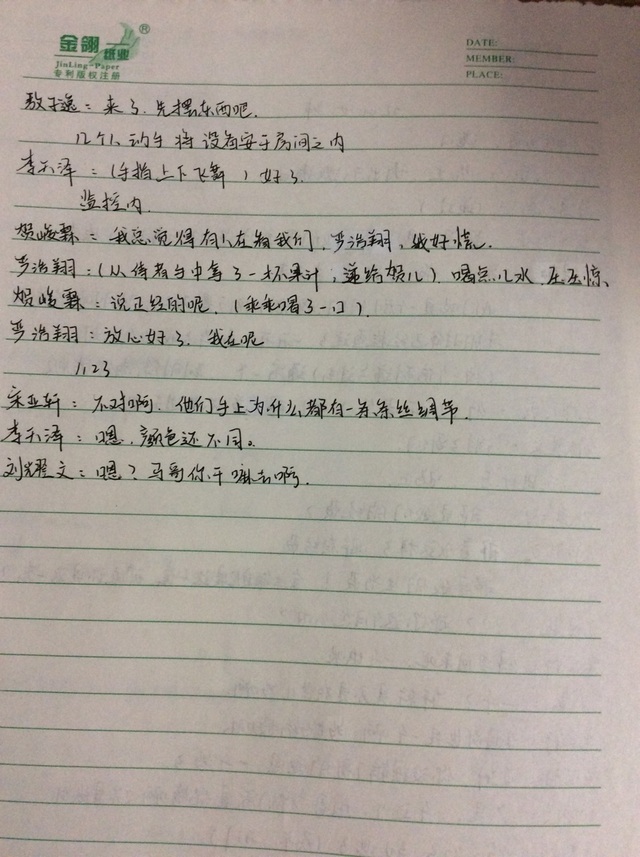 金翎纸业
JinLing-Paper
专利版权注册
DATE:
MEMBER:
PLACE:
敖子逸：来了，先摆东西吧.
几个人动手将设备安于房间之内
李天泽：（手指上下飞舞）好了.
监控内.
贺峻霖：我总觉得有人在看我们，严浩翔，我好慌.
严浩翔：（从侍者手中拿了一杯果汁，递给贺儿）喝点儿水，压压惊、
贺峻霖：说正经的呢.（乖乖喝了一口）.
严浩翔：放心好了，我在呢
1123
宋亚轩：不对啊，他们手上为什么都有一条条丝绸带.
李天泽：嗯，颜色还不同。
刘耀文：嗯？马哥你干嘛去啊.